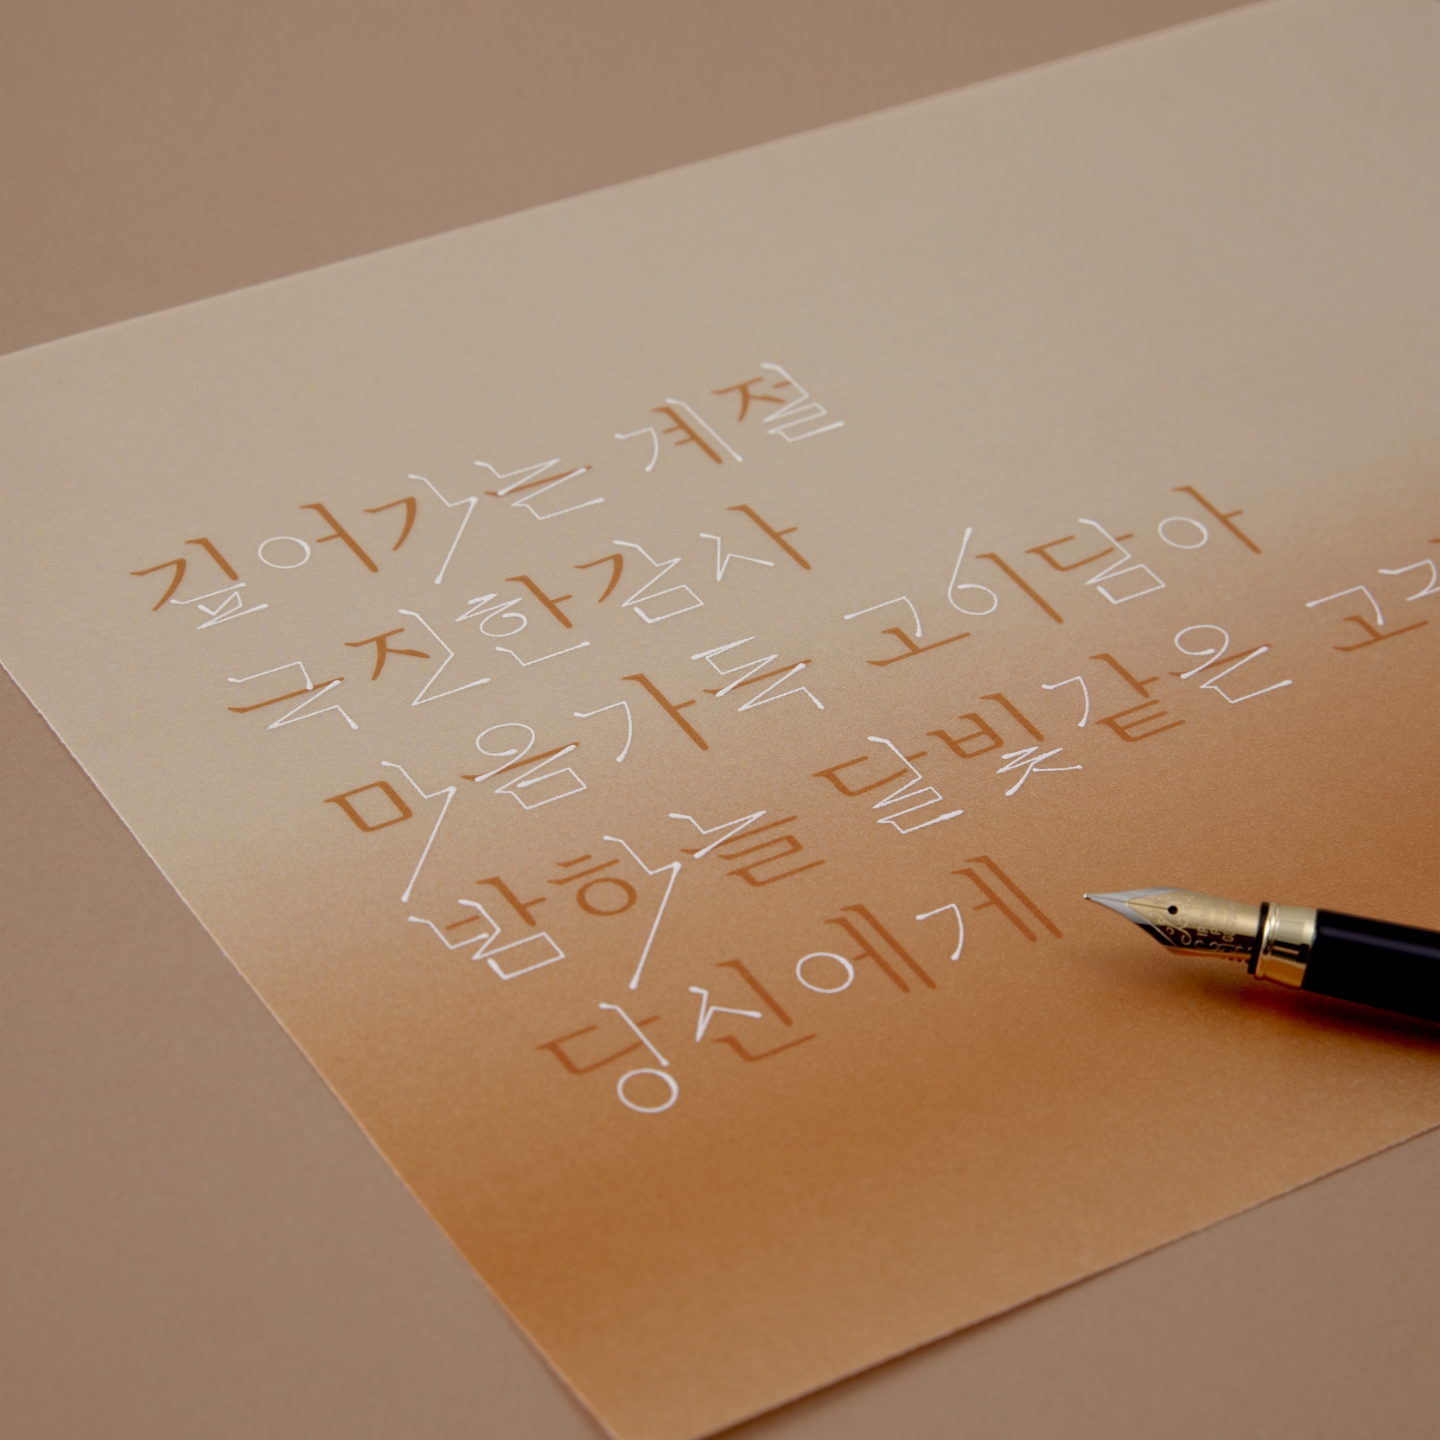 깊어가는 계절
극진한감사
마음가득 고이담아
밤하늘 달빛같은
당신에게